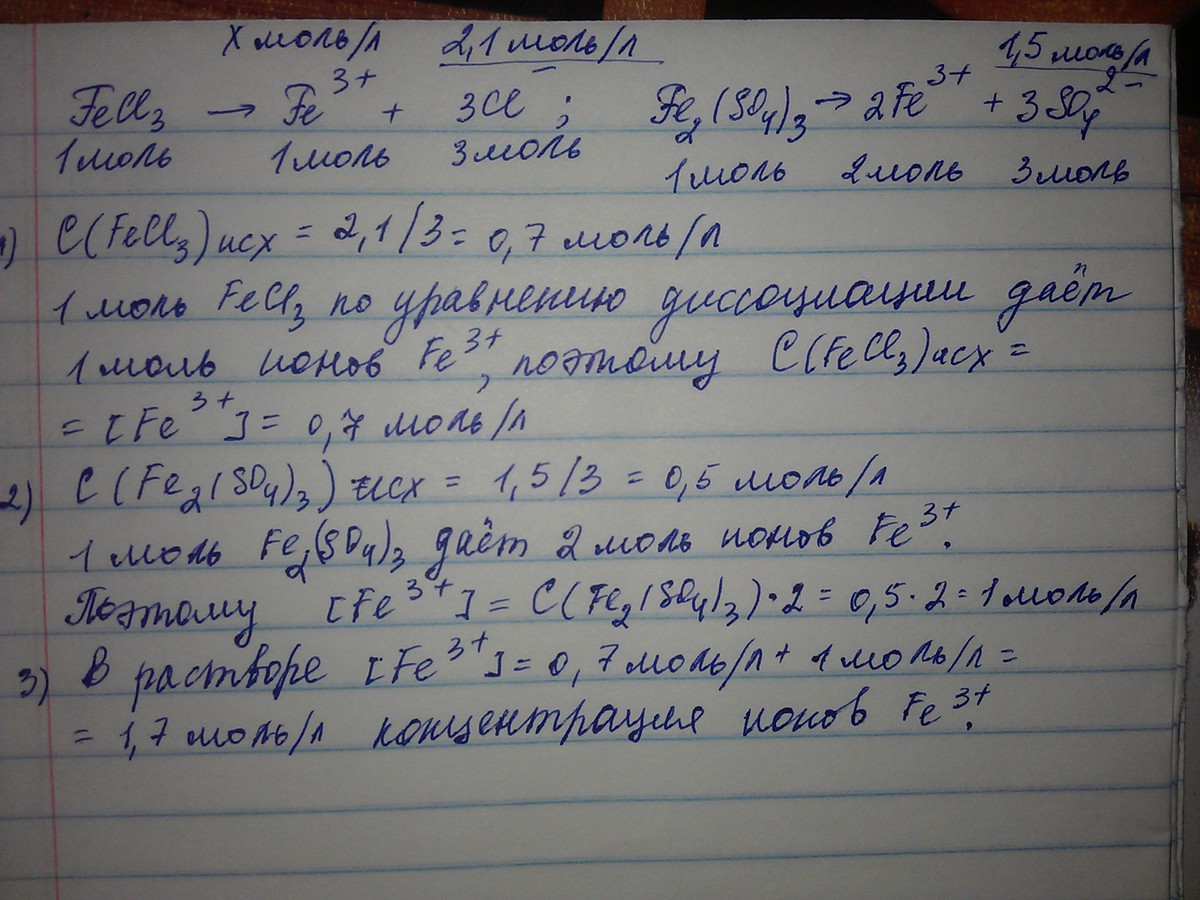 х моль/л 2,1 моль/л 1,5 моль/л
FeCl₃ → Fe³⁺ + 3Cl⁻ ; Fe₂(SO₄)₃ → 2Fe³⁺ + 3SO₄²⁻
1 моль 1 моль 3 моль 1 моль 2 моль 3 моль
1) C(FeCl₃)исх = 2,1/3 = 0,7 моль/л
1 моль FeCl₃ по уравнению диссоциации даёт
1 моль ионов Fe³⁺, поэтому C(FeCl₃)исх =
= [Fe³⁺] = 0,7 моль/л
2) C(Fe₂(SO₄)₃) исх = 1,5/3 = 0,5 моль/л
1 моль Fe₂(SO₄)₃ даёт 2 моль ионов Fe³⁺.
Поэтому [Fe³⁺] = C(Fe₂(SO₄)₃)·2 = 0,5·2 = 1 моль/л
3) В растворе [Fe³⁺] = 0,7 моль/л + 1 моль/л =
= 1,7 моль/л концентрация ионов Fe³⁺.